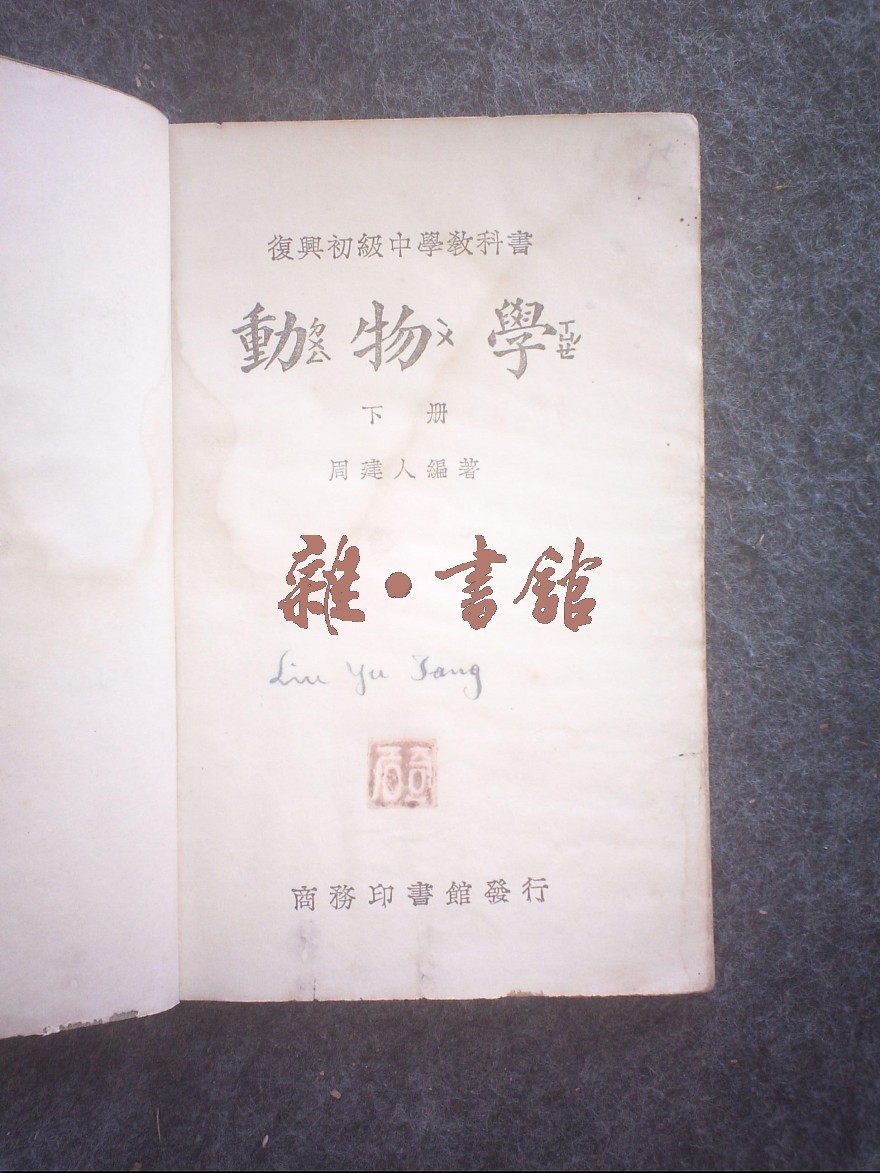 復興初級中學教科書
動ㄉㄨㄥ物ㄨ學ㄒㄩㄝ
下册
周建人編著
雜·書館
Liu Yu Tang
商務印書館發行